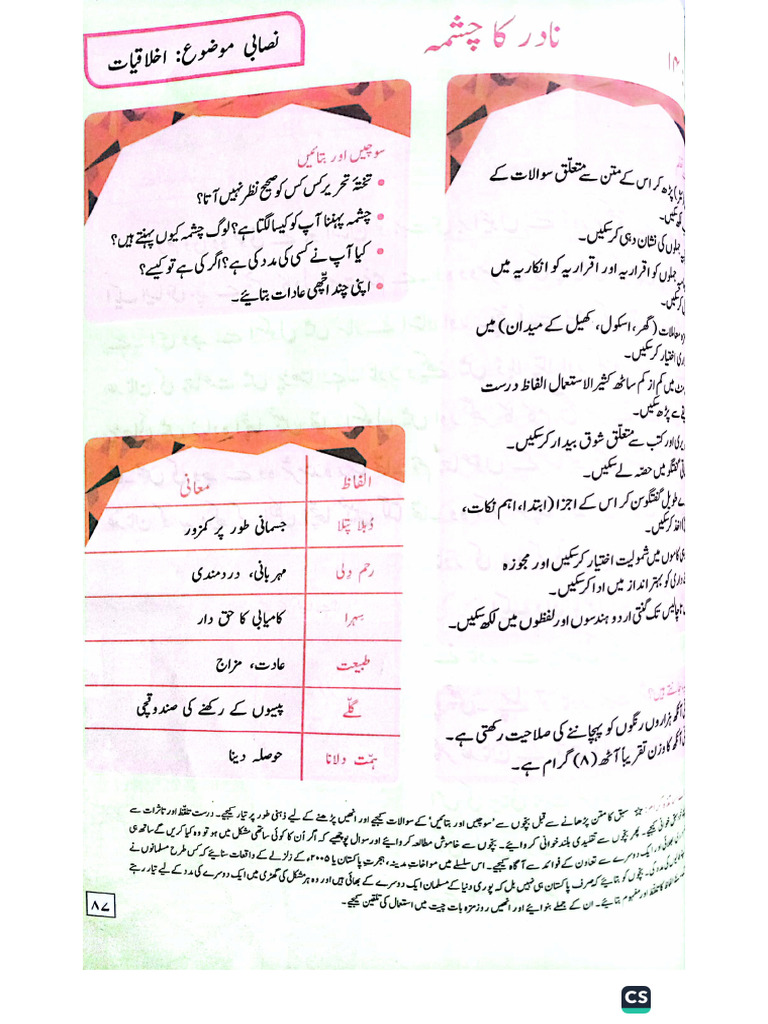 نادر کا چشمہ
نصابی موضوع: اخلاقیات
پڑھ کر اس کے متن سے متعلق سوالات کے
سکیں۔
جملوں کی نشان دہی کرسکیں۔
جملوں کو اقراریہ اور اقراریہ کو انکاریہ میں
کرسکیں۔
معاملات (گھر، اسکول، کھیل کے میدان) میں
اختیار کرسکیں۔
میں کم از کم ساٹھ کثیر الاستعمال الفاظ درست
سے پڑھ سکیں۔
اور کتب سے متعلق شوق بیدار کرسکیں۔
گفتگو میں حصہ لے سکیں۔
طویل گفتگو سن کر اس کے اجزا (ابتدا، اہم نکات،
اخذ کرسکیں۔
کاموں میں شمولیت اختیار کرسکیں اور مجوزہ
داری کو بہتر انداز میں ادا کرسکیں۔
چالیس تک گنتی اردو ہندسوں اور لفظوں میں لکھ سکیں۔
آنکھ ہزاروں رنگوں کو پہچاننے کی صلاحیت رکھتی ہے۔
آنکھ کا وزن تقریباً آٹھ (۸) گرام ہے۔
سوچیں اور بتائیں
• تختۂ تحریر کس کس کو صحیح نظر نہیں آتا؟
• چشمہ پہننا آپ کو کیسا لگتا ہے؟ لوگ چشمہ کیوں پہنتے ہیں؟
• کیا آپ نے کسی کی مدد کی ہے؟ اگر کی ہے تو کیسے؟
• اپنی چند اچھی عادات بتائیے۔
الفاظ معانی
دُبلا پتلا جسمانی طور پر کمزور
رحم دِلی مہربانی، دردمندی
سہرا کامیابی کا حق دار
طبیعت عادت، مزاج
گلّے پیسوں کے رکھنے کی صندوقچی
ہمّت دلانا حوصلہ دینا
☆ سبق کا متن پڑھانے سے قبل بچّوں سے 'سوچیں اور بتائیں' کے سوالات کیجیے اور انھیں پڑھنے کے لیے ذہنی طور پر تیار کیجیے۔ درست تلفّظ اور تاثرات سے
خوانی کیجیے۔ پھر بچّوں سے تقلیدی بلند خوانی کروائیے۔ بچّوں سے خاموش مطالعہ کروائیے اور سوال پوچھیے کہ اگر اُن کا کوئی ساتھی مشکل میں ہو تو وہ کیا کریں گے ساتھ ہی
اور ایک دوسرے سے تعاون کے فوائد سے آگاہ کیجیے۔ اس سلسلے میں مواخاتِ مدینہ، ہجرتِ پاکستان یا ۲۰۰۵ء کے زلزلے کے واقعات سنائیے کہ کس طرح مسلمانوں نے
کی مدد کی۔ بچّوں کو بتائیے کہ صرف پاکستان ہی نہیں بل کہ پوری دنیا کے مسلمان ایک دوسرے کے بھائی ہیں اور وہ ہر مشکل کی گھڑی میں ایک دوسرے کی مدد کے لیے تیار رہتے
الفاظ کا تلفّظ اور مفہوم بتائیے۔ ان کے جملے بنوائیے اور انھیں روزمرہ بات چیت میں استعمال کی تلقین کیجیے۔
۸۷
CS